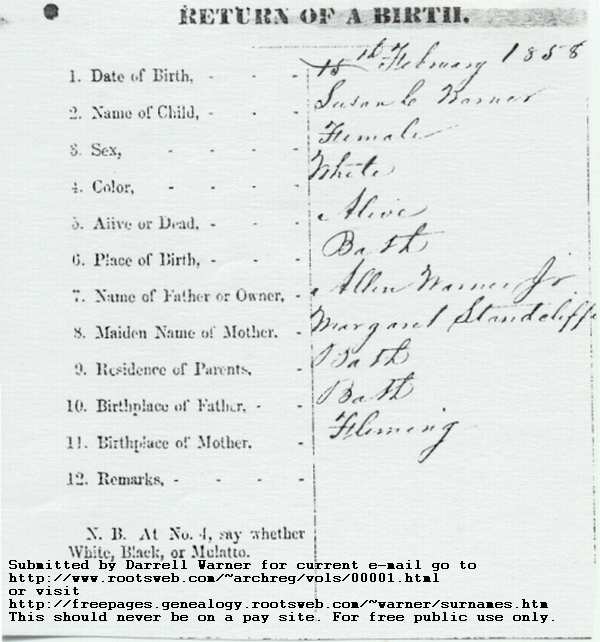 RETURN OF A BIRTH.
1. Date of Birth, - - - 15th February 1858
2. Name of Child, - - - Susan C Warner
3. Sex, - - - - Female
4. Color, - - - - White
5. Alive or Dead, - - - Alive
6. Place of Birth, - - - Bath
7. Name of Father or Owner, - Allen Warner Jr
8. Maiden Name of Mother. - Margaret Standcliffe
9. Residence of Parents, - Bath
10. Birthplace of Father, - - Bath
11. Birthplace of Mother. - Fleming
12. Remarks, - - - -
N. B. At No. 4, say whether
White, Black, or Mulatto.
Submitted by Darrell Warner for current e-mail go to
http://www.rootsweb.com/~archreg/vols/00001.html
or visit
http://freepages.genealogy.rootsweb.com/~warner/surnames.htm
This should never be on a pay site. For free public use only.